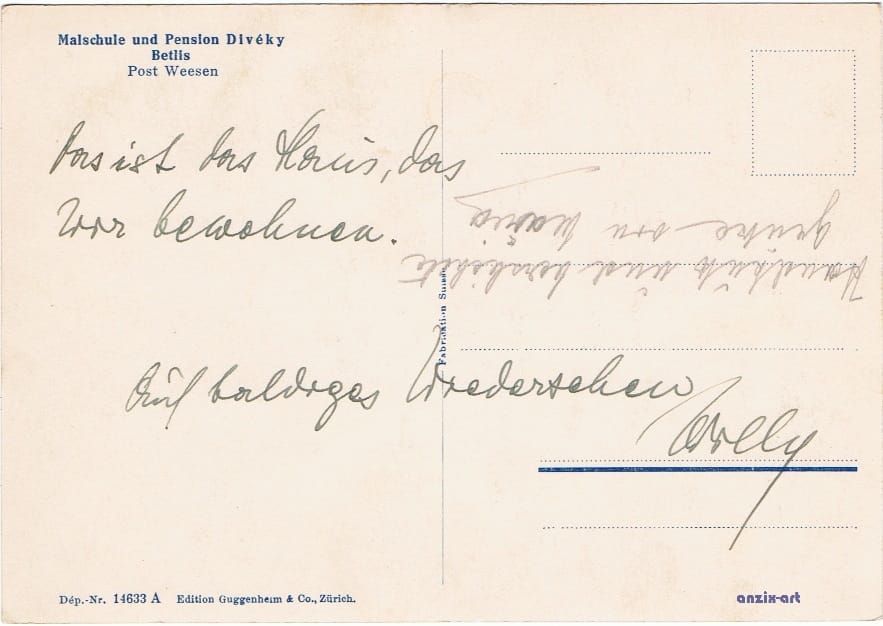 Malschule und Pension Divéky
Betlis
Post Weesen
Das ist das Haus, das
wir bewohnen.
Auf baldiges Wiedersehen
Willy
Handkuß und herzlichste
Grüße von Maria
Fabrikation Suisse
Dép.-Nr. 14633 A Edition Guggenheim & Co., Zürich.
anzix-art